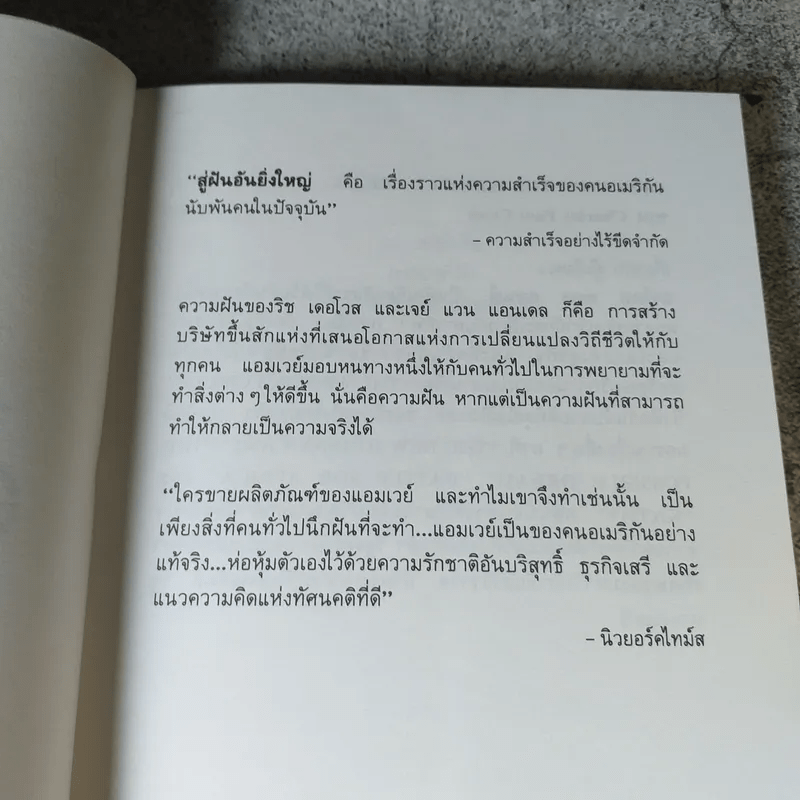 “สู่ฝันอันยิ่งใหญ่ คือ เรื่องราวแห่งความสำเร็จของคนอเมริกัน
นับพันคนในปัจจุบัน”
– ความสำเร็จอย่างไร้ขีดจำกัด
ความฝันของริช เดอโวส และเจย์ แวน แอนเดล ก็คือ การสร้าง
บริษัทขึ้นสักแห่งที่เสนอโอกาสแห่งการเปลี่ยนแปลงวิถีชีวิตให้กับ
ทุกคน แอมเวย์มอบหนทางหนึ่งให้กับคนทั่วไปในการพยายามที่จะ
ทำสิ่งต่าง ๆ ให้ดีขึ้น นั่นคือความฝัน หากแต่เป็นความฝันที่สามารถ
ทำให้กลายเป็นความจริงได้
“ใครขายผลิตภัณฑ์ของแอมเวย์ และทำไมเขาจึงทำเช่นนั้น เป็น
เพียงสิ่งที่คนทั่วไปนึกฝันที่จะทำ...แอมเวย์เป็นของคนอเมริกันอย่าง
แท้จริง...ห่อหุ้มตัวเองไว้ด้วยความรักชาติอันบริสุทธิ์ ธุรกิจเสรี และ
แนวความคิดแห่งทัศนคติที่ดี”
– นิวยอร์คไทม์ส